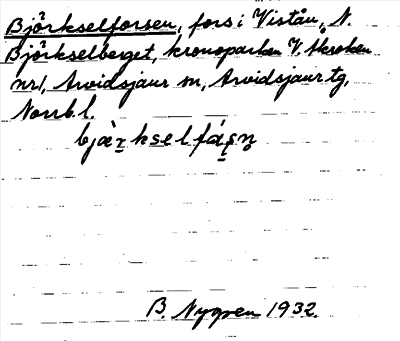 Björkselforsen, fors i Vistån, N.
Björkselberget, kronoparken V. Akroken
nr 1, Arvidsjaur sn, Arvidsjaur tg,
Norrb. l.
B. Nygren 1932.